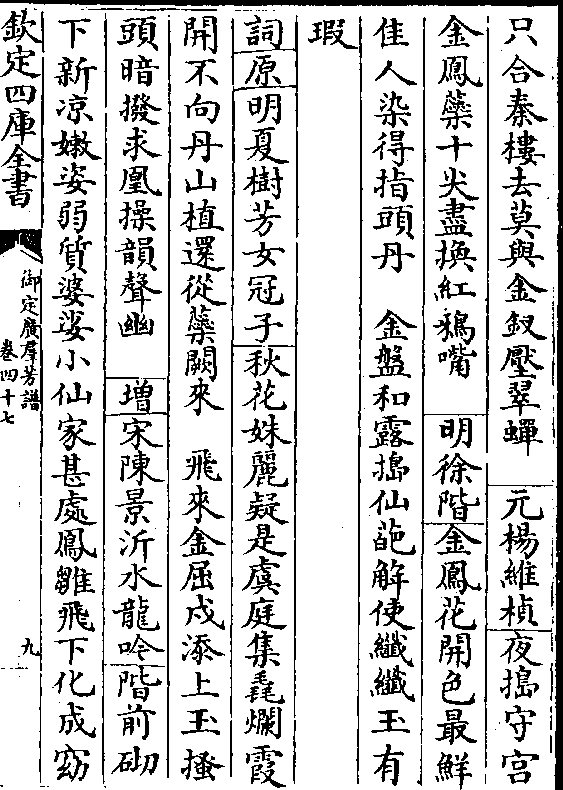 只合秦樓去莫與金釵壓翠蟬　元楊維楨夜搗守宫
金鳳蘂十尖盡換紅鴉嘴　明徐階金鳳花開色最鮮
佳人染得指頭丹　金盤和露搗仙葩解使纖纖玉有
瑕
詞原明夏樹芳女冠子秋花姝麗疑是虞庭集毳爛霞
開不向丹山植還從蘂闕來　飛來金屈戍添上玉搔
頭暗撥求凰操韻聲幽　增宋陳景沂水龍吟階前砌
下新凉嫩姿弱質婆娑小仙家甚處鳳雛飛下化成窈
欽定四庫全書
御定廣羣芳譜
卷四十七
九